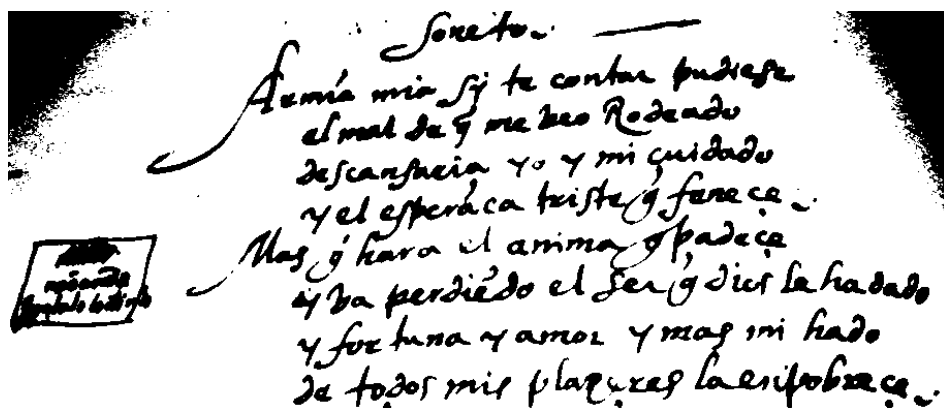 Soneito
Armia mia sy te contar pudiese
el mal de q̃ me veo Rodeado
descansaria yo y mi cuidado
y el esperāça triste q̃ feneçe
Mas q̃ hara el anima q̃ padeçe
y va perdiēdo el ser q̃ dios la ha dado
y fortuna y amor y mas mi hado
de todos mis plaçeres la enpobreçe